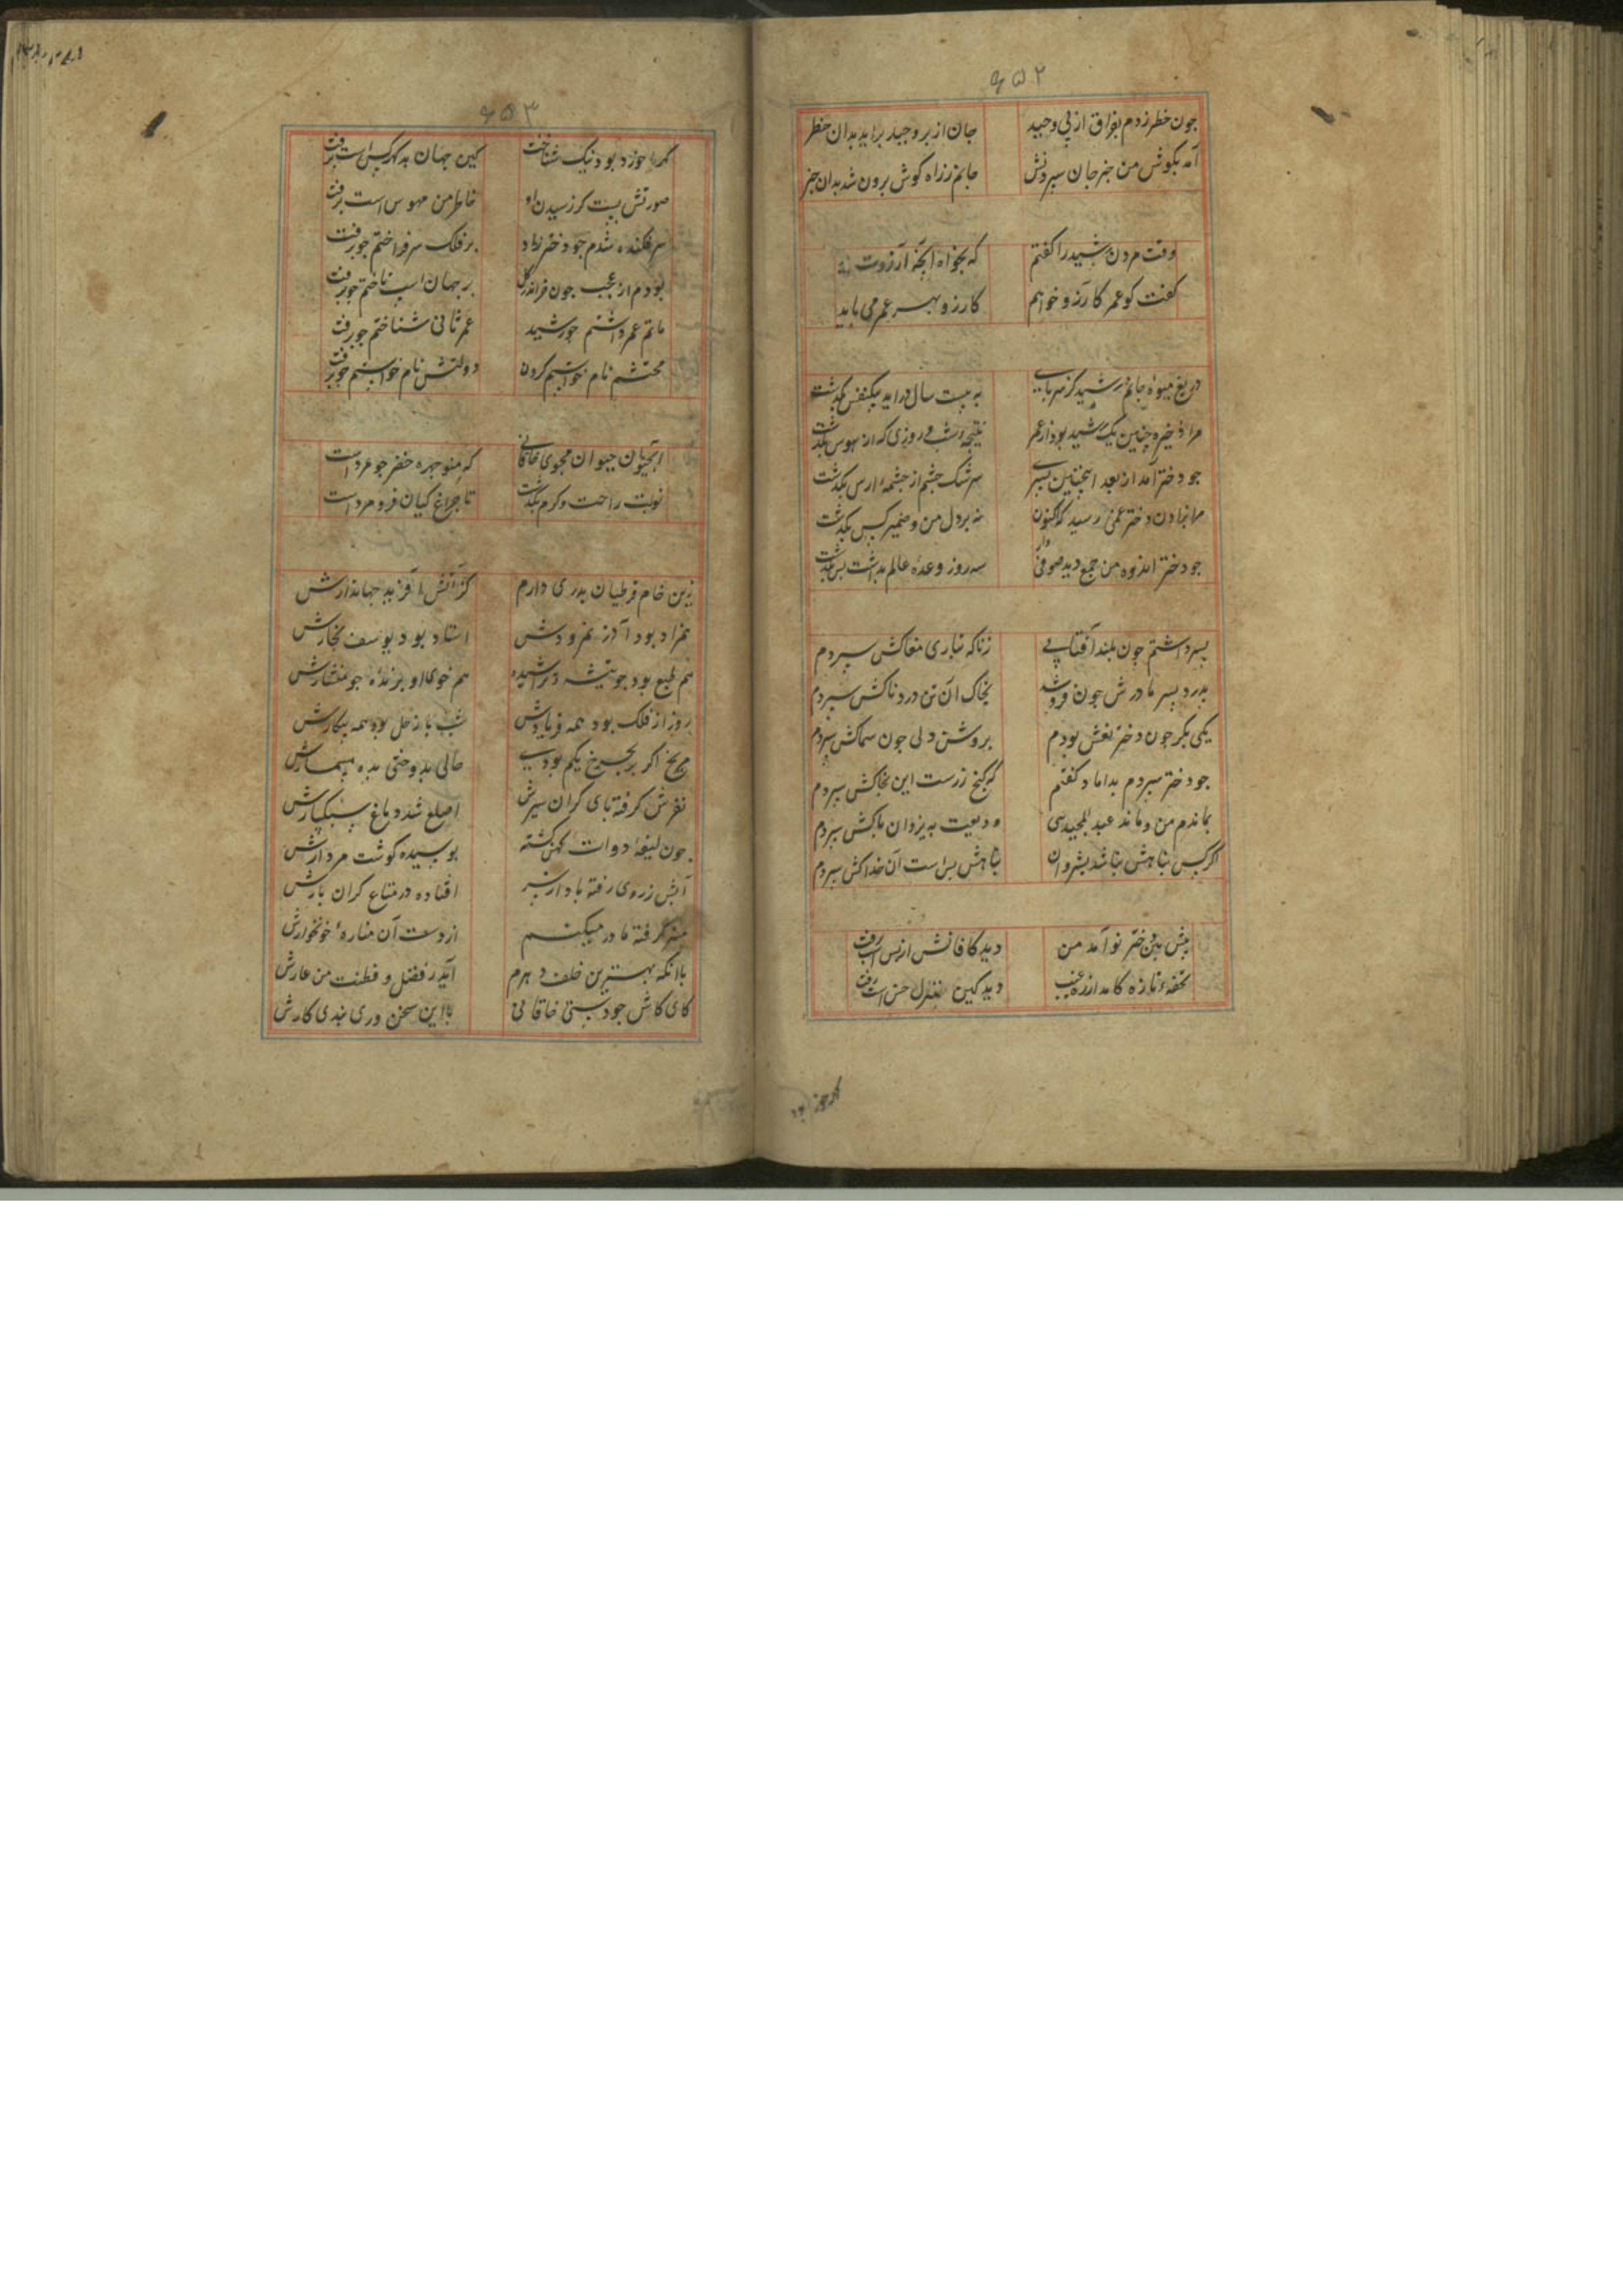 ۶۵۲
جون خطر زدم بفراق از پی وحید جان از بر وحید برآید بدان خطر
آمد بکوش من خبر جان سپردنش جانم ز راه کوش برون شد بدان خبر
وقت مردن رشید را کفتم که بخواه آنجه آرزوت
کفت کو عمر کارزو خواهم کارزو بهر عمر می باید
دریغ میوه جانم رشید کز سر پای به بیست سال درآمد بیکنفس بکذشت
مرا ذخیره همین یک رشید بود از عمر نتیجه شب و روزی که از هوس بکذشت
جو دختر آمد از بعد اینجنین پسری سرشک جشم از جشمه ارس بکذشت
مرا بزادن دختر غمی رسید که اکنون نه بر دل من و ضمیر کس بکذشت
جو دختر انده من جمع دید صوفی وار سه روز وعده عالم بداشت بس بکذشت
پسر داشتم جون بلند آفتابی ز ناکه بتاری مغاکش سپردم
بدرد پسر مادرش جون فرو شد بخاک آن تن دردناکش سپردم
یکی بکر جون دختر نعش بودم بروشن دلی جون سماکش سپردم
جو دختر سپردم بداماد کفتم که کنج زرست این بخاکش سپردم
بماندم من و ماند عبد المجیدی ودیعت به یزدان پاکش سپردم
اکر کس پناهش نباشد بشروان پناهش بس است آن خداکش سپردم
پیش بین دختر نو آمد من دید کافاتش از پس است برفت
تحفه تازه کامد از ره غیب دید کین منزل خس است برفت
۶۵۳
کرجه خرد بود نیک شناخت کین جهان بد کهر کس است برفت
صورتش بست کز رسیدن او خاطر من مهوس است برفت
سر فکنده شدم جو دختر زاد بر فلک سر فراختم جو برفت
بودم از عجب جون خر اندر کل بر جهان اسپ تاختم جو برفت
ماتم عمر داشتم جو رسید عمر ثانی شناختم جو برفت
محتشم نام خواستم کردن دولتش نام خواستم جو برفت
آب حیوان مجوی خاقانی که منوجهر خضر جو مردست
نوبت راحت و کرم بکذشت تا جراغ کیان فرو مردست
زین خام قرطبان بدری دارم کز آتش آفرید جهاندارش
همزاد بود آذر نمرودش استاد بود یوسف نجارش
هم طبع بود جو تیشه تراشیده هم خوی او برنده جو منشارش
روز از فلک بود همه فریادش شب با زحل بود همه بیکارش
مریخ اکر بجرخ یکم بودی حالی بدوختی بدو مسمارش
نقرس کرفته پای کران سیرش اصلع شده دماغ سبکسارش
جون لیقه دوات کهن کشته پوسیده کوشت مردارش
آبش ز روی رفته و باد از سر افتاده در متاع کران بارش
منبر کرفته مادر مسکینم از دست آن مناره خونخوارش
با آنکه بهترین خلف دهرم آید ز فضل و فطنت من عارش
کای کاش جو دستی خاقانی با این سخن وری بندی کارش